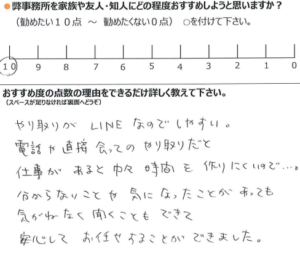 ●弊事務所を家族や友人・知人にどの程度おすすめしようと思いますか?
(勧めたい10点 ～ 勧めたくない0点) ○を付けて下さい。
10 9 8 7 6 5 4 3 2 1 0
おすすめ度の点数の理由をできるだけ詳しく教えて下さい。
(スペースが足りなければ裏面へどうぞ)
やり取りが LINE なのでしやすい。
電話や直接会ってのやり取りだと
仕事があると中々時間も作りにくいので…。
分からないことや気になったことがあっても
気がねなく聞くこともできて
安心してお任せすることができました。